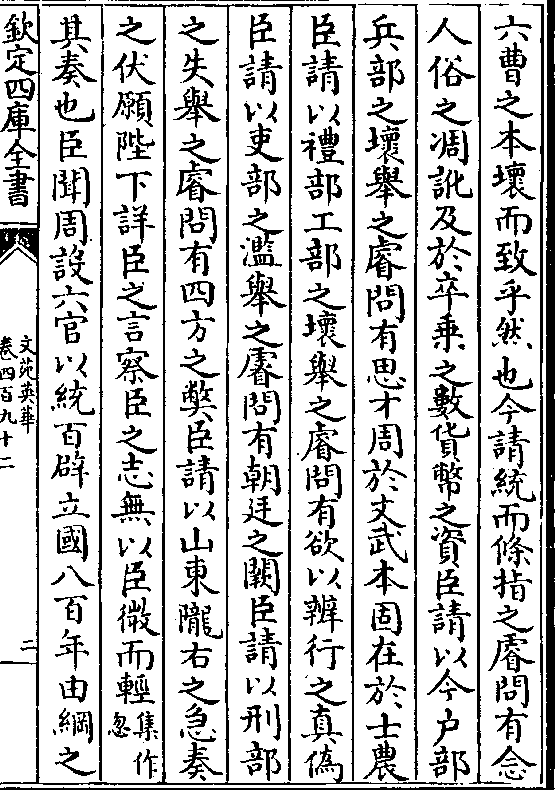 六曹之本壞而致乎然也今請統而條指之睿問有念
人俗之凋訛及於卒乘之數貨幣之資臣請以今户部
兵部之壞舉之睿問有思才周於文武本固在於士農
臣請以禮部工部之壞舉之睿問有欲以辨行之真偽
臣請以吏部之濫舉之睿問有朝廷之闕臣請以刑部
之失舉之睿問有四方之弊臣請以山東隴右之急奏
之伏願陛下詳臣之言察臣之志無以臣微而輕集作忽
其奏也臣聞周設六官以統百辟立國八百年由綱之
欽定四庫全書
文苑英華
卷四百九十二
二